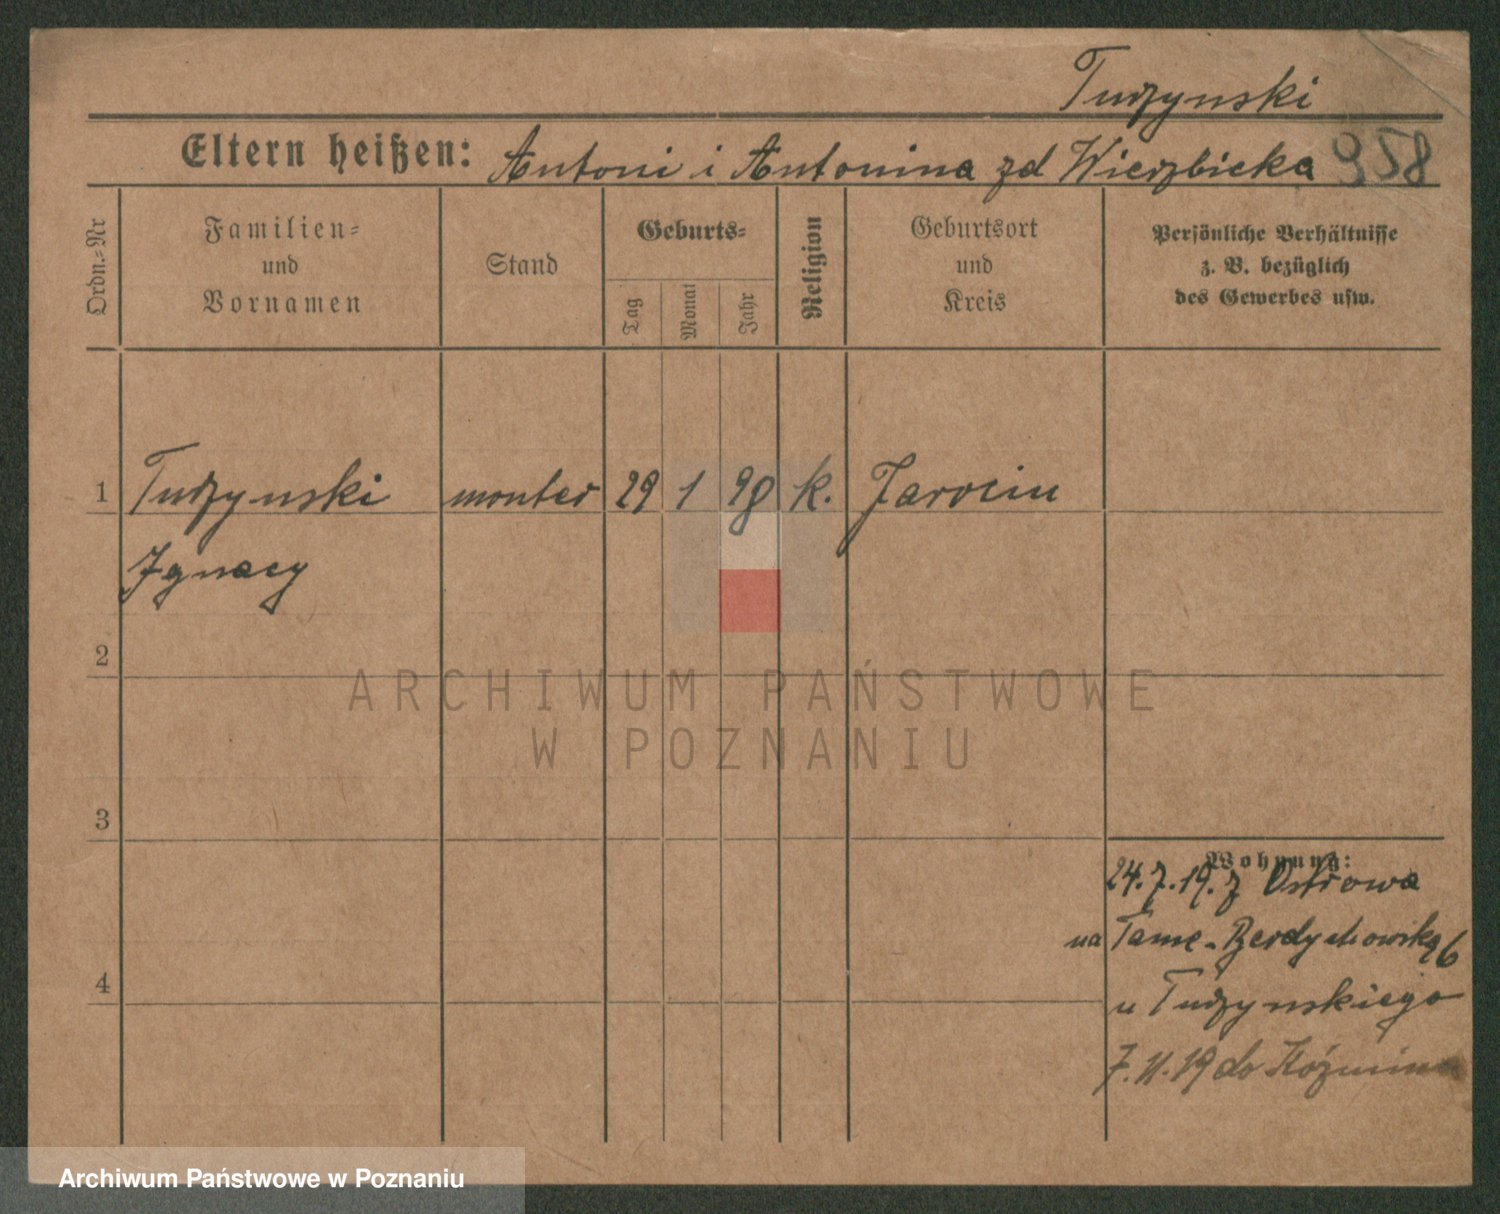 Tudzynski
Eltern heißen: Antoni i Antonina zd Wierzbicka 958
Ordn.-Nr
Familien-
und
Vornamen
Stand
Geburts-
Tag
Monat
Jahr
Religion
Geburtsort
und
Kreis
Persönliche Verhältnisse
z. B. bezüglich
des Gewerbes usw.
1 Tudzynski monter 29 1 98 k. Jarocin
Ignacy
2
3
4
Wohnung:
24.7.19. z Ostrowa
na Tame-Berdychowską 6
u Tudzynskiego
7.11.19 do Kóźmina
ARCHIWUM PAŃSTWOWE
W POZNANIU
Archiwum Państwowe w Poznaniu